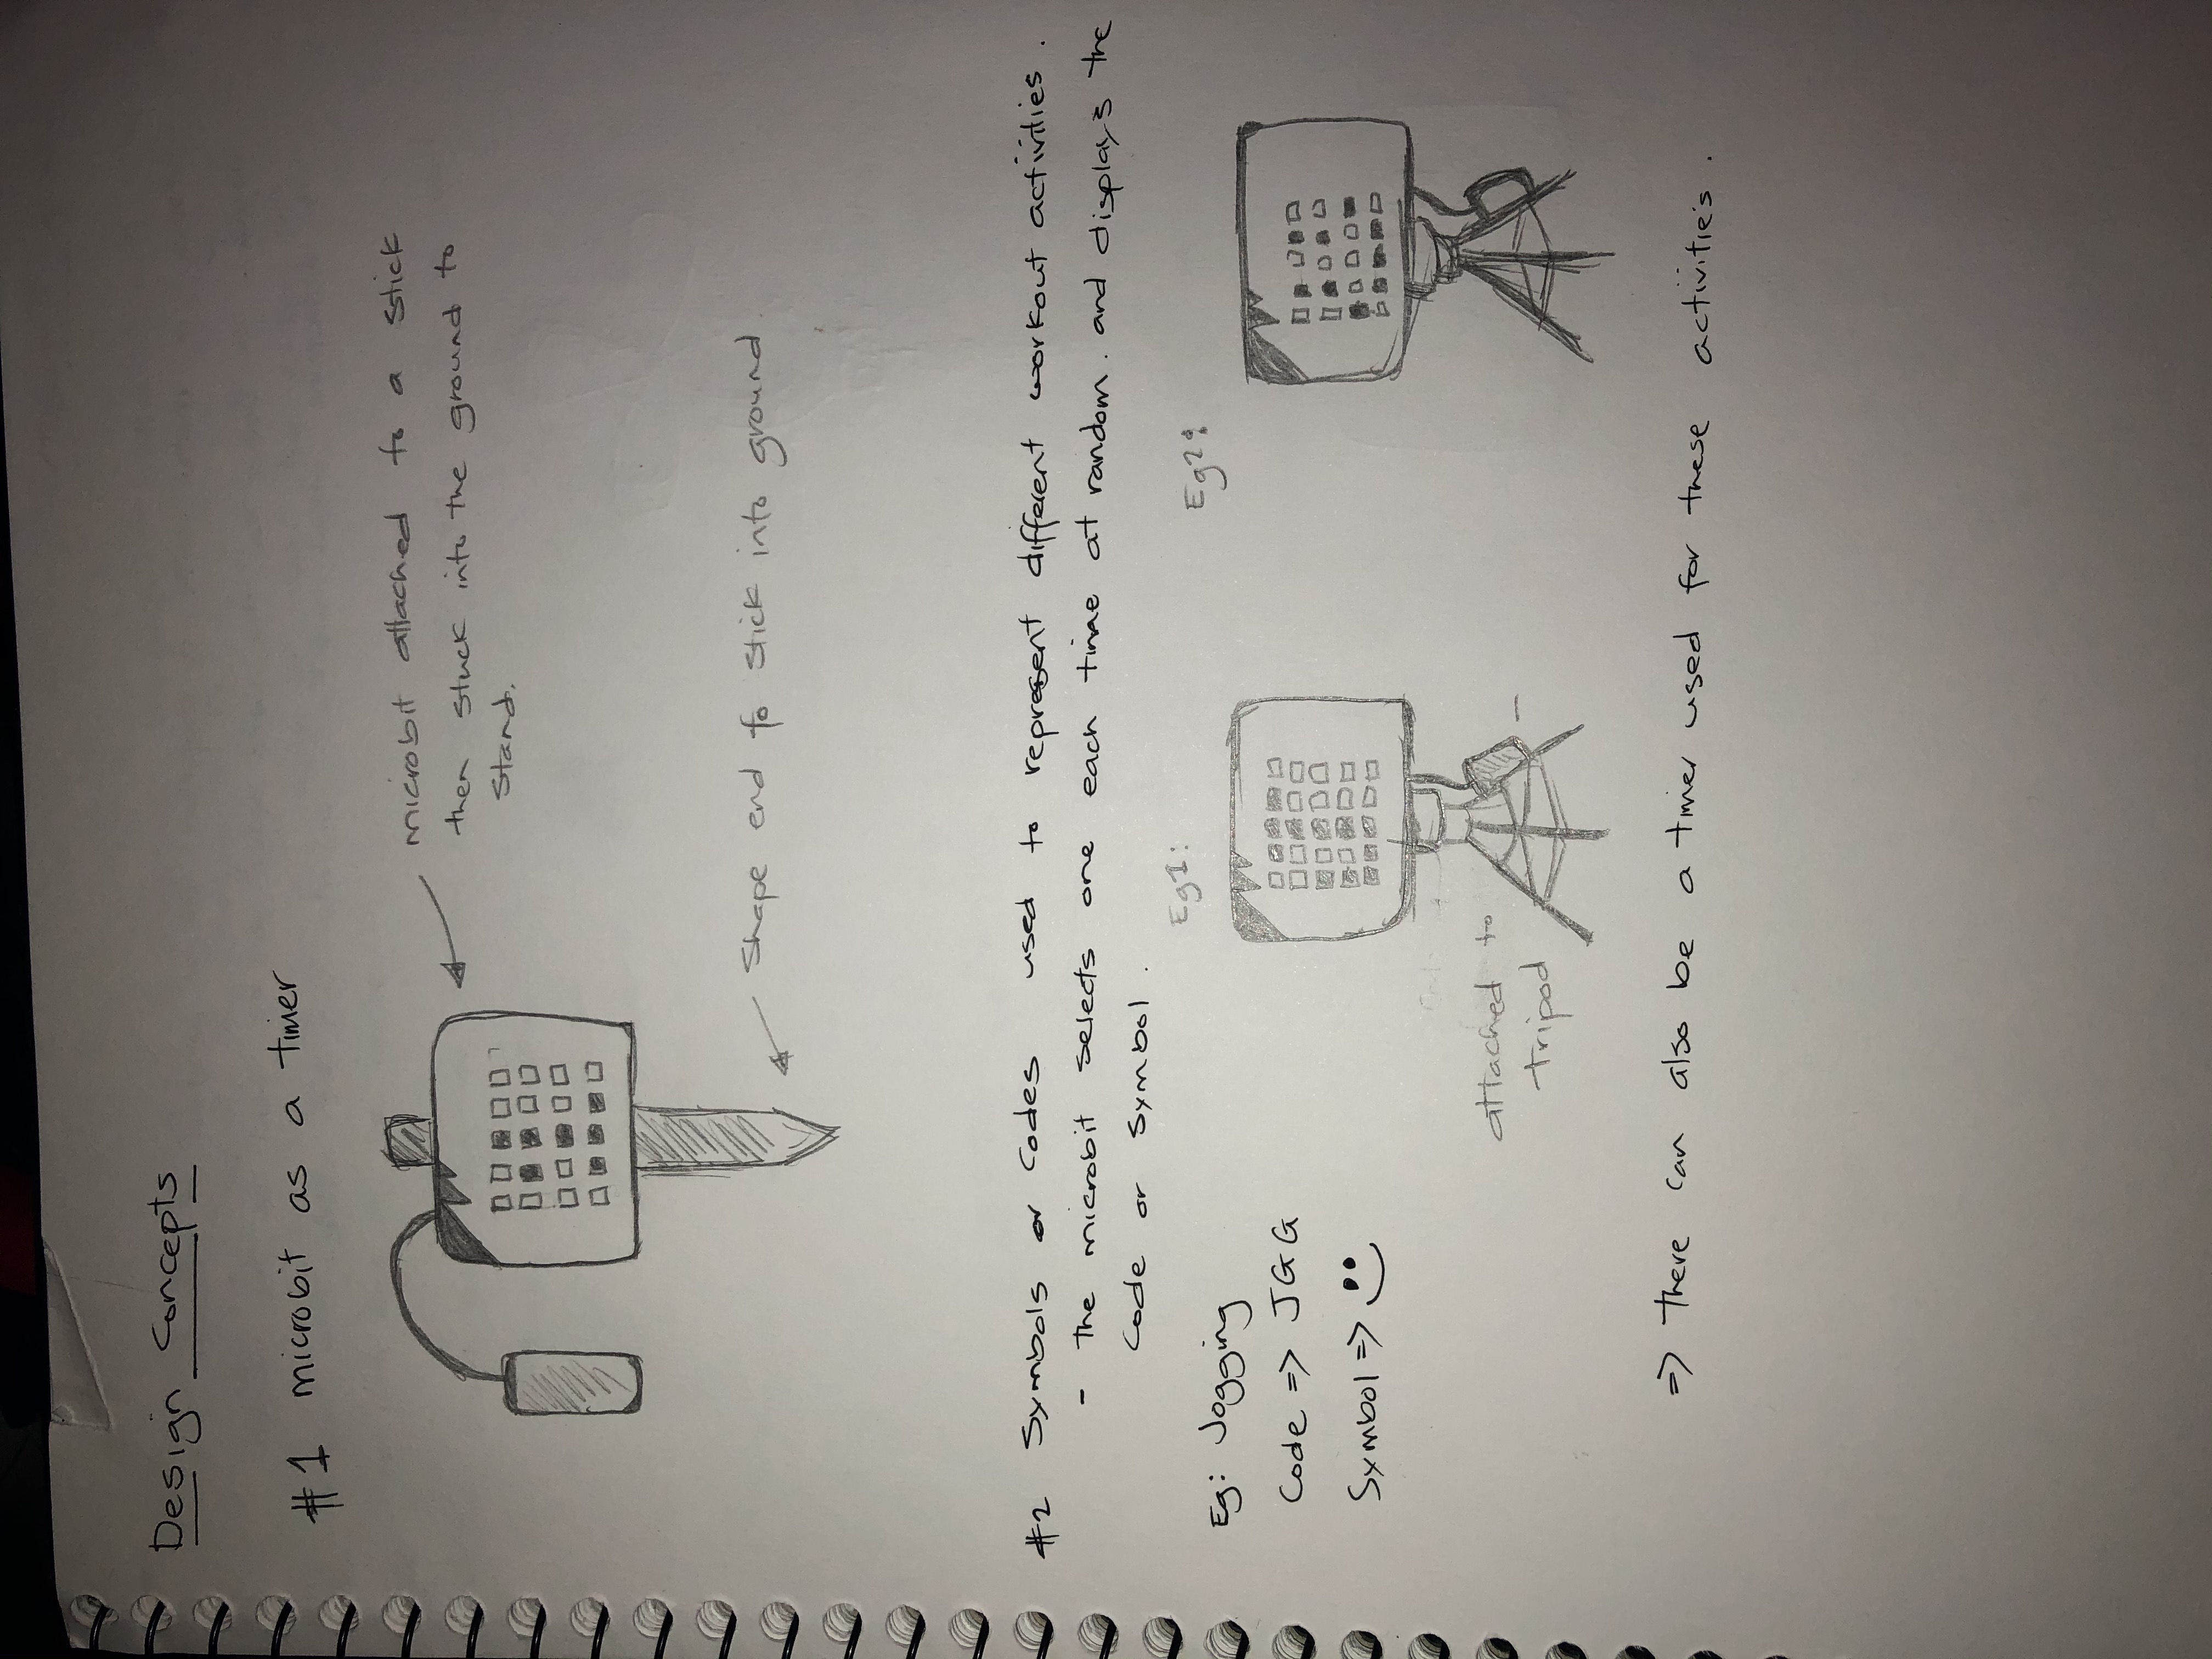 Design Concepts
#1 microbit as a timer
microbit attached to a stick
then stuck into the ground to
stand.
Shape end to stick into ground.
#2 Symbols or Codes used to represent different workout activities.
- The microbit selects one each time at random. and displays the
Code or Symbol.
Eg1:
Eg2:
Eg: Jogging
Code => JGG
Symbol =>
attached to
tripod
=> There can also be a timer used for these activities.